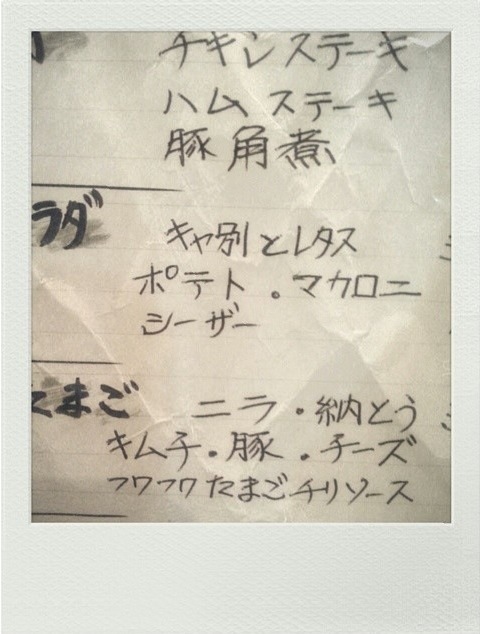 チキンステーキ
ハムステーキ
豚角煮
ラダ
キャ別とレタス
ポテト・マカロニ
シーザー
たまご
ニラ・納とう
キムチ・豚・チーズ
フワフワたまごチリソース